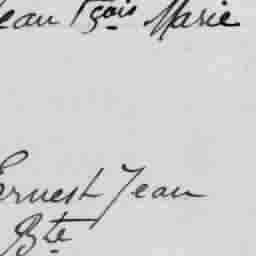 Jean Fçois Marie
Ernest Jean
Bte